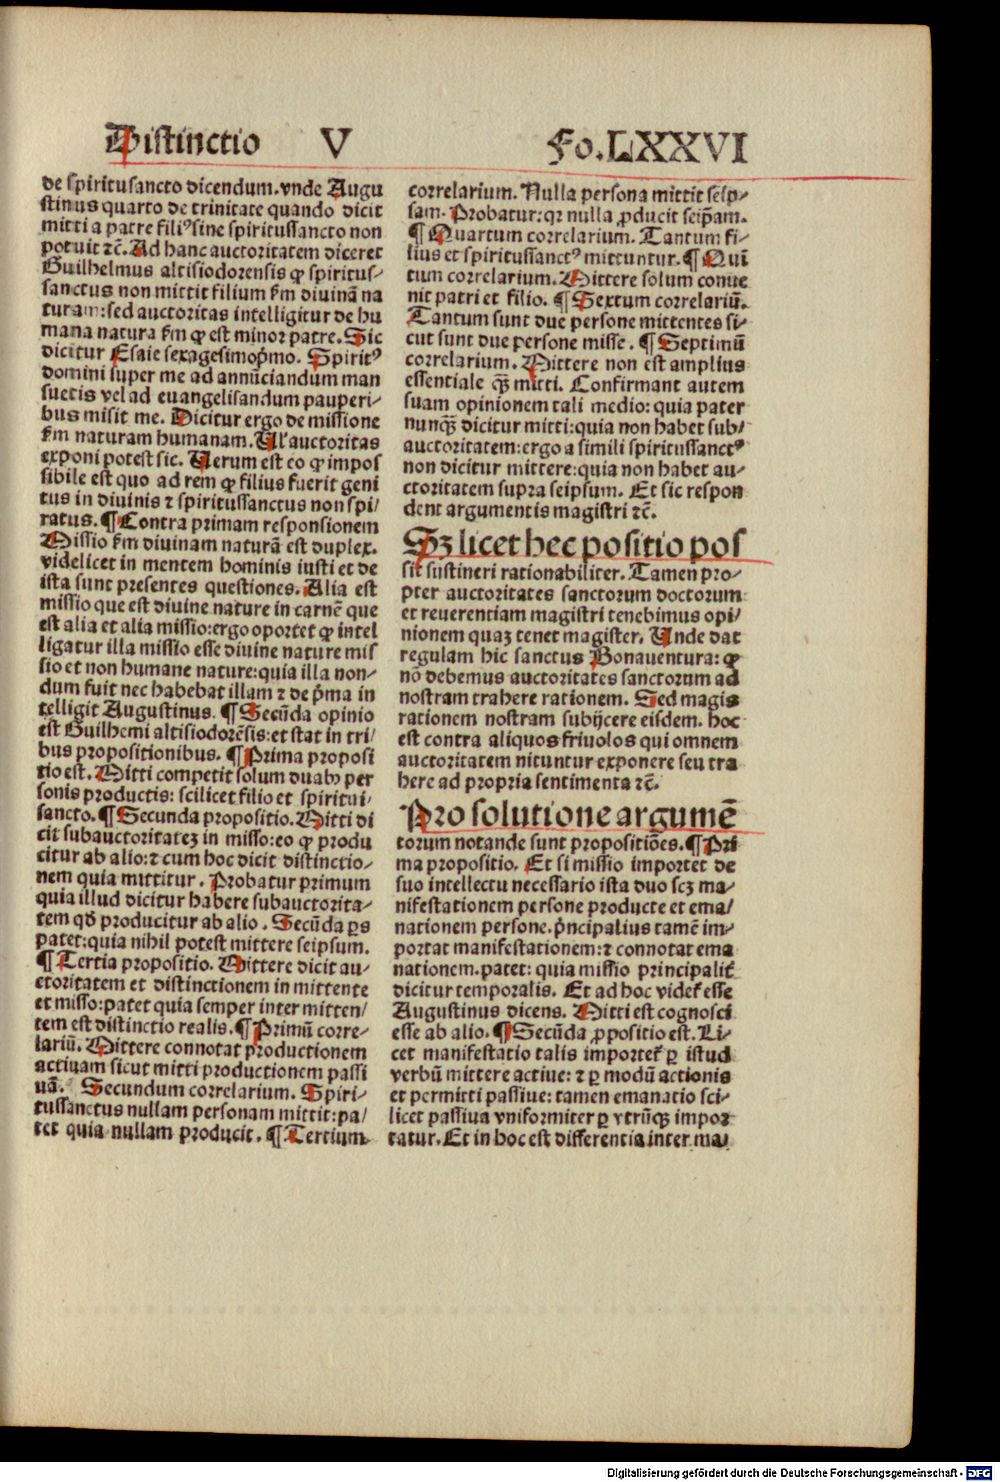 Distinctio V Fo.LXXVI
de spiritusancto dicendum.vnde Augu
stinus quarto de trinitate quando dicit
mitti a patre filiꝰ sine spiritussancto non
potuit ⁊c̄. Ad hanc auctoritatem diceret
Guilhelmus altisiodorensis ꝙ spiritus⸗
sanctus non mittit filium ẜm diuinā na
turam:sed auctoritas intelligitur de hu
mana natura ẜm ꝙ est minor patre. Sic
dicitur Esaie sexagesimop̄mo. Spiritꝰ
domini super me ad annūciandum man
suetis vel ad euangelisandum pauperi⸗
bus misit me. Dicitur ergo de missione
ẜm naturam humanam. Vl' auctoritas
exponi potest sic. Verum est eo ꝙ impos
sibile est quo ad rem ꝙ filius fuerit geni
tus in diuinis ⁊ spiritussanctus non spi⸗
ratus. ¶ Contra primam responsionem
Missio ẜm diuinam naturā est duplex.
videlicet in mentem hominis iusti et de
ista sunt presentes questiones. Alia est
missio que est diuine nature in carnē que
est alia et alia missio:ergo oportet ꝙ intel
ligatur illa missio esse diuine nature mis
sio et non humane nature:quia illa non⸗
dum fuit nec habebat illam ⁊ de p̄ma in
telligit Augustinus. ¶ Secūda opinio
est Guilhemi altisiodorēsis:et stat in tri⸗
bus propositionibus. ¶ Prima proposi
tio est. Mitti competit solum duabꝫ per
sonis productis: scilicet filio et spiritui⸗
sancto. ¶ Secunda propositio. Mitti di
cit subauctoritateꝫ in misso:eo ꝙ produ
citur ab alio:⁊ cum hoc dicit distinctio⸗
nem quia mittitur. Probatur primum
quia illud dicitur habere subauctorita⸗
tem qd̄ producitur ab alio. Secūda ꝑs
patet:quia nihil potest mittere seipsum.
¶ Tertia propositio. Mittere dicit au⸗
ctoritatem et distinctionem in mittente
et misso:patet quia semper inter mitten⸗
tem est distinctio realis. ¶ Primū corre⸗
lariū. Mittere connotat productionem
actiuam sicut mitti productionem passi
uā. Secundum correlarium. Spiri⸗
tussanctus nullam personam mittit:pa⸗
tet quia nullam producit. ¶ Tertium
correlarium. Nulla persona mittit seip⸗
sam. Probatur:qꝛ nulla ꝓducit seip̄am.
¶ Quartum correlarium. Tantum fi⸗
lius et spiritussanctꝰ mittuntur. ¶ Quī
tum correlarium. Mittere solum conue
nit patri et filio. ¶ Sextum correlariū.
Tantum sunt due persone mittentes si⸗
cut sunt due persone misse. ¶ Septimū
correlarium. Mittere non est amplius
essentiale qꝫ̄ mitti. Confirmant autem
suam opinionem tali medio: quia pater
nunqꝫ̄ dicitur mitti:quia non habet sub⸗
auctoritatem:ergo a simili spiritussanctꝰ
non dicitur mittere:quia non habet au⸗
ctoritatem supra seipsum. Et sic respon
dent argumentis magistri ⁊c̄.
Sꝫ licet hec positio pos
sit sustineri rationabiliter. Tamen pro⸗
pter auctoritates sanctorum doctorum
et reuerentiam magistri tenebimus opi⸗
nionem quaꝫ tenet magister. Unde dat
regulam hic sanctus Bonauentura: ꝙ
nō debemus auctoritates sanctorum ad
nostram trahere rationem. Sed magis
rationem nostram subijcere eisdem. hoc
est contra aliquos friuolos qui omnem
auctoritatem nituntur exponere seu tra
here ad propria sentimenta ⁊c̄.
Pro solutione argumē
torum notande sunt propositiōes. ¶ Pri
ma propositio. Et si missio importet de
suo intellectu necessario ista duo scꝫ ma⸗
nifestationem persone producte et ema⸗
nationem persone.p̄ncipalius tamē im⸗
portat manifestationem:⁊ connotat ema
nationem.patet: quia missio principalit̄
dicitur temporalis. Et ad hoc videt̄ esse
Augustinus dicens. Mitti est cognosci
esse ab alio. ¶ Secūda ꝓpositio est. Li⸗
cet manifestatio talis importet̄ ꝑ istud
verbū mittere actiue: ⁊ ꝑ modū actionis
et per mitti passiue: tamen emanatio sci⸗
licet passiua vniformiter ꝑ vtrūqꝫ impor
tatur. Et in hoc est differentia inter ma⸗
Digitalisierung gefördert durch die Deutsche Forschungsgemeinschaft - DFG